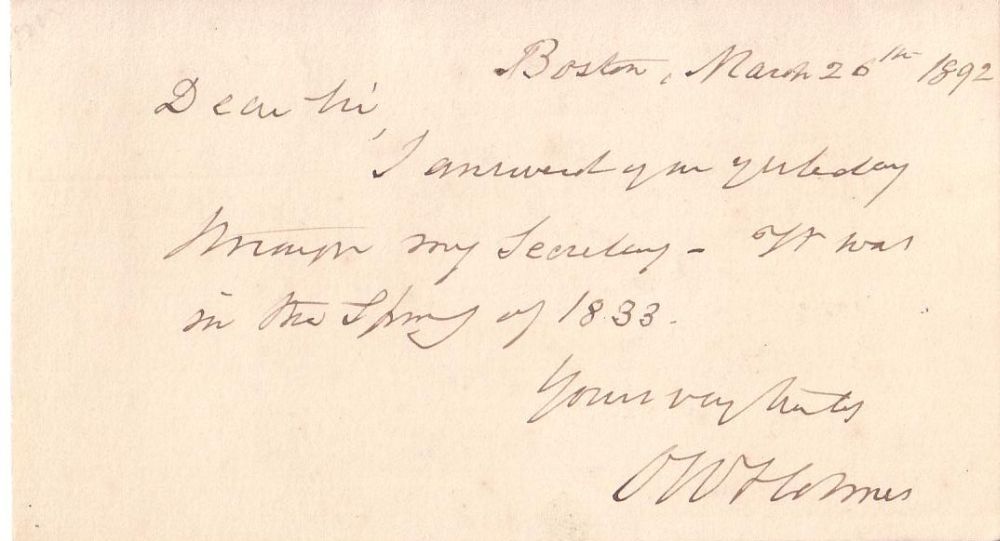 Boston, March 26th 1892
Dear Sir,
I answered you yesterday
through my Secretary - It was
in the Spring of 1833.
Yours very truly
O W Holmes